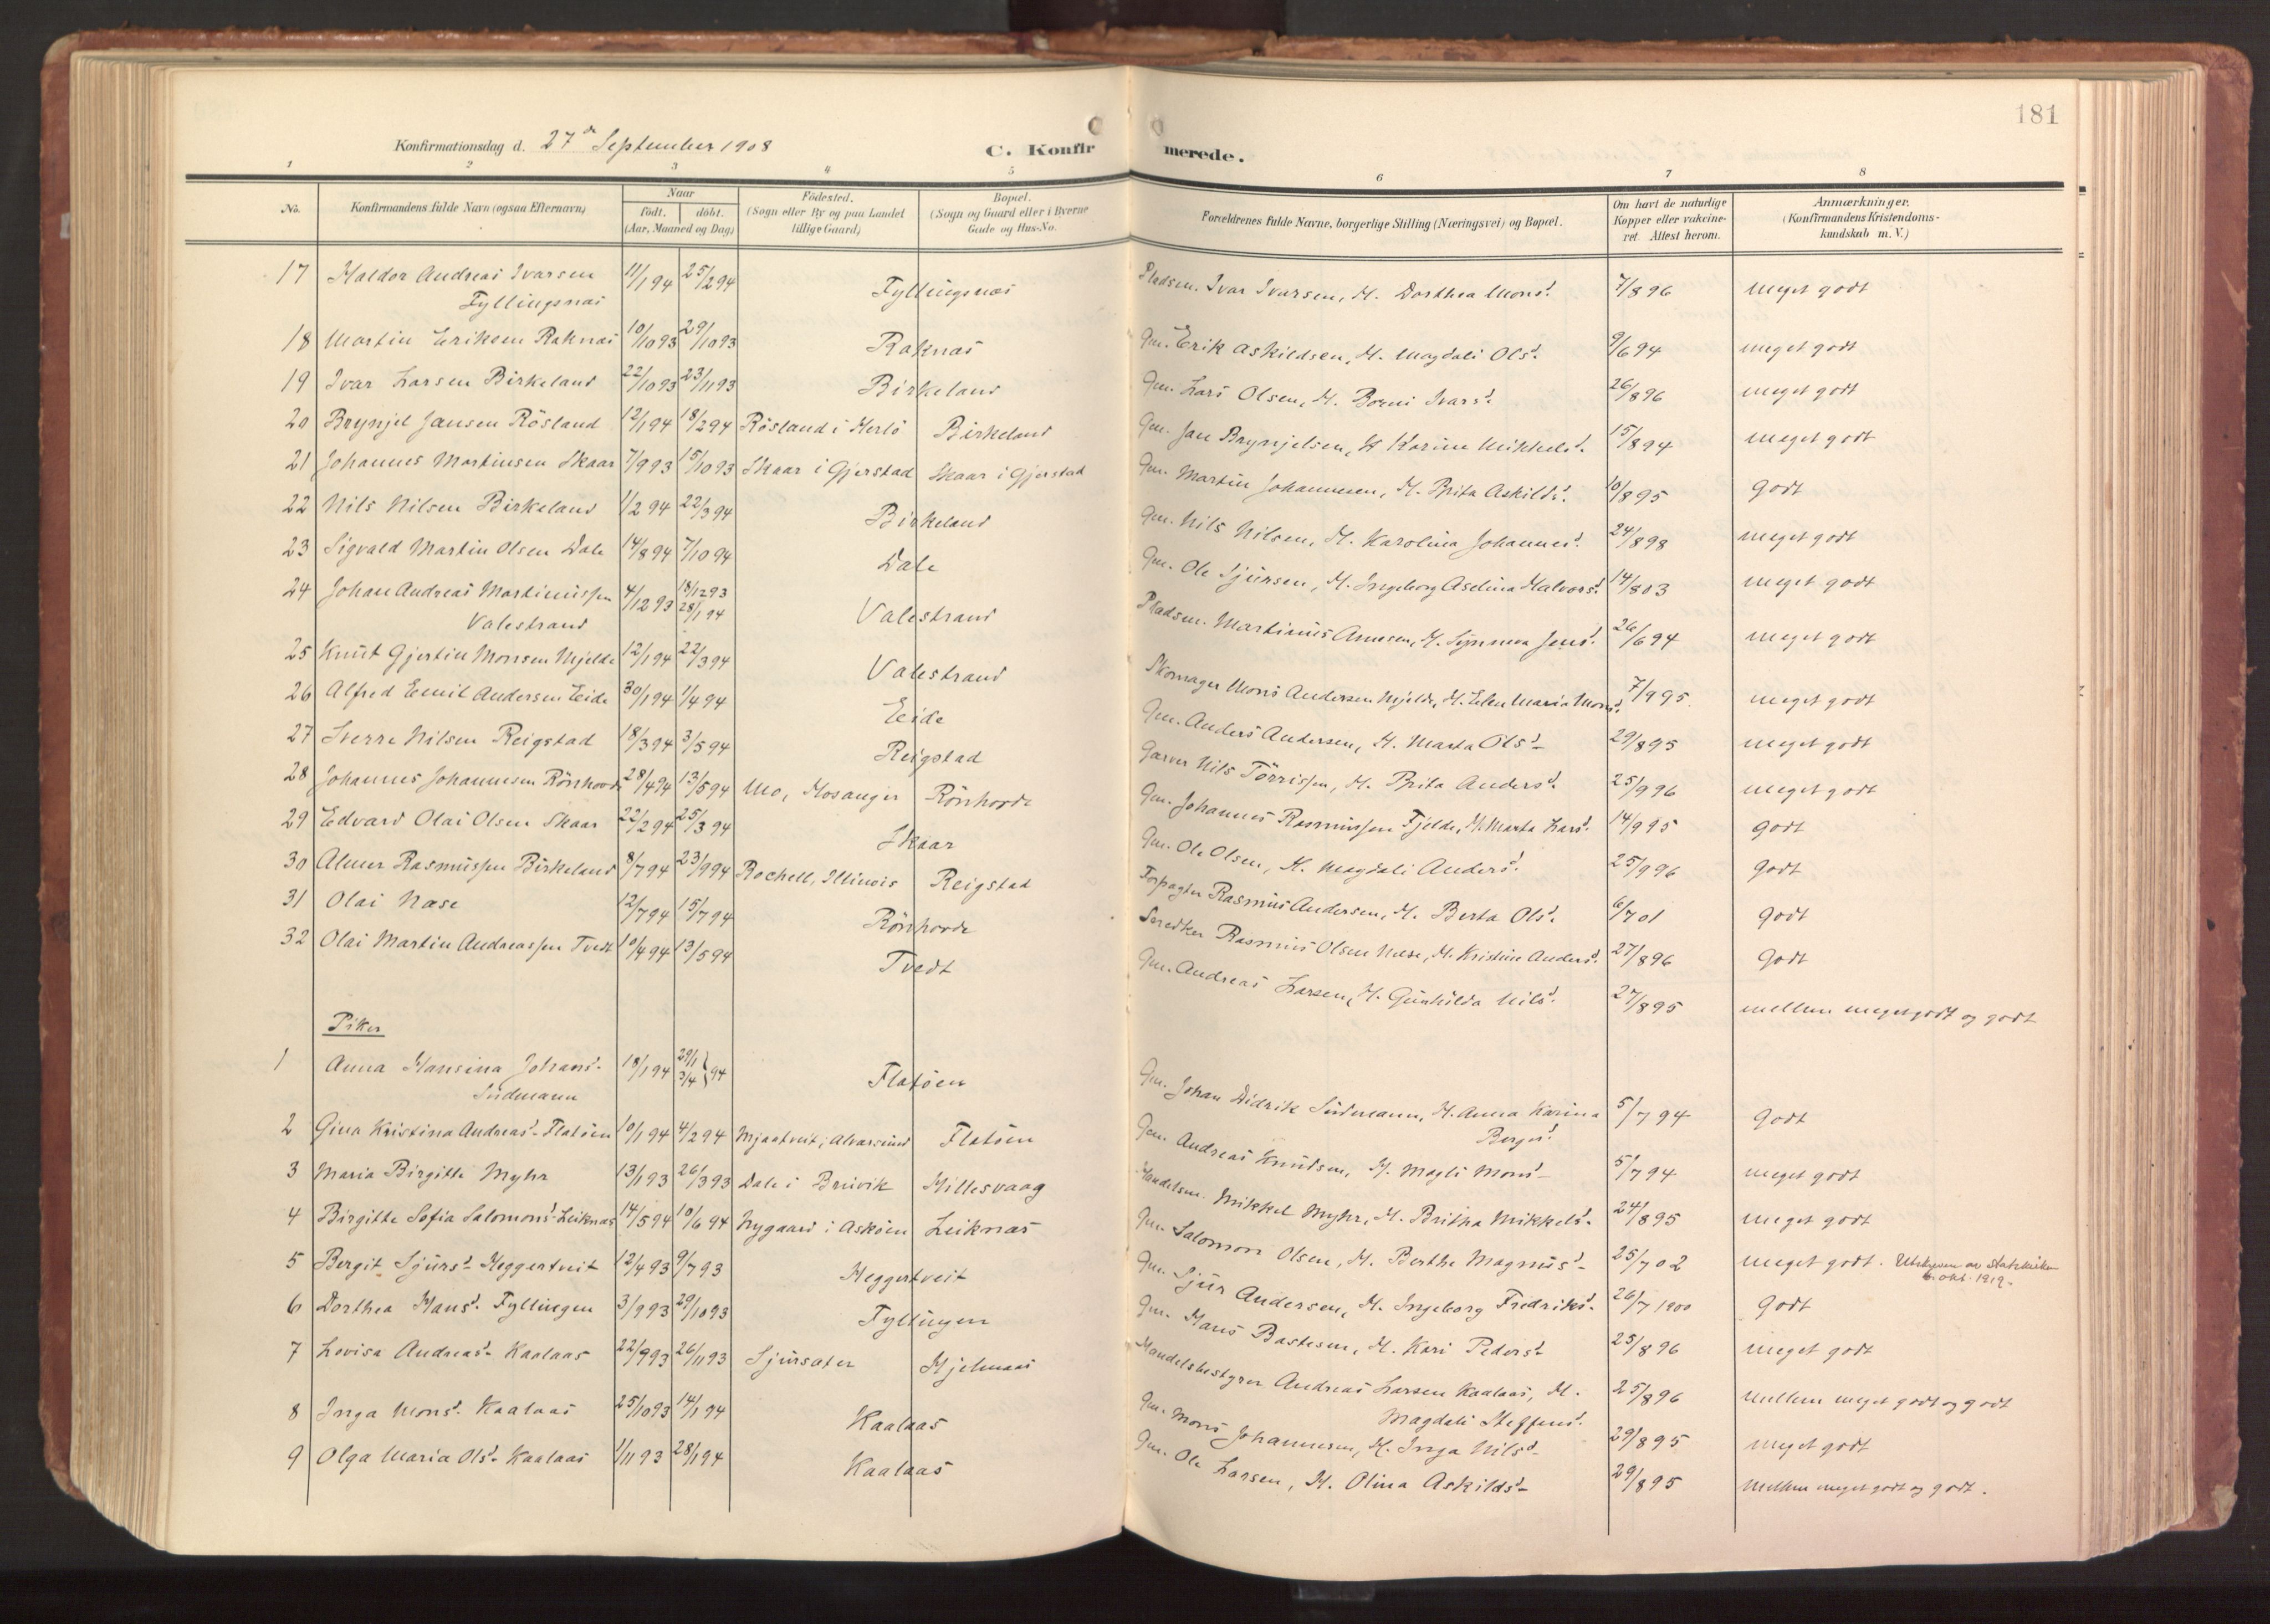 181
Konfirmationsdag d. 27de September 1908
C. Konfirmerede.
1 2 3 4 5 6 7 8
No. Konfirmandens fulde Navn (ogsaa Efternavn) Naar født. døbt. (Aar, Maaned og Dag) Fødested. (Sogn eller By og paa Landet tillige Gaard) Bopæl. (Sogn og Gaard eller i Byerne Gade og Hus-No. Forældrenes fulde Navne, borgerlige Stilling (Næringsvei) og Bopæl. Om havt de naturlige Kopper eller vakcineret. Attest herom. Anmærkninger. (Konfirmandens Kristendomskundskab m. V.)
17 Haldor Andreas Ivarsen Fyllingsnæs 11/1 94 25/2 94 Fyllingsnæs Pladsm. Ivar Ivarsen, H. Dorthea Monsd. 7/8 96 meget godt
18 Martin Eriksen Raknæs 10/10 93 29/10 93 Raknæs Gm. Erik Askildsen, H. Magdali Olsd. 9/6 94 meget godt
19 Ivar Larsen Birkeland 22/10 93 23/11 93 Birkeland Gm. Lars Olsen, H. Borni Ivarsd. 26/8 96 meget godt
20 Brynjel Jansen Rösland 12/1 94 18/2 94 Rösland i Herlö Birkeland Gm. Jan Brynjelsen, H. Karine Mikkelsd. 15/8 94 meget godt
21 Johannes Martinsen Skaar 7/9 93 15/10 93 Skaar i Gjerstad Skaar i Gjerstad Gm. Martin Johannesen, H. Brita Askildsd. 10/8 95 Godt
22 Nils Nilsen Birkeland 1/2 94 22/3 94 Birkeland Gm. Nils Nilsen, H. Karolina Johannesd. 24/8 98 meget godt
23 Sigvald Martin Olsen Dale 14/8 94 7/10 94 Dale Gm. Ole Sjursen, H. Ingeborg Aselina Halvorsd. 14/8 03 meget godt
24 Johan Andreas Martinussen Valestrand 4/12 93 18/12 93 28/1 94 Valestrand Pladsm. Martinus Arnesen, H. Synneva Jensd. 26/6 94 meget godt
25 Knut Gjertin Monsen Mjelde 12/1 94 22/3 94 Valestrand Skomager Mons Andersen Mjelde, H. Elen Maria Monsd. 7/9 95. meget godt
26 Alfred Emil Andersen Eide 30/1 94 1/4 94 Eide Gm. Anders Andersen, H. Marta Olsd. 29/8 95 meget godt
27 Sverre Nilsen Reigstad 18/3 94 3/5 94 Reigstad Garver Nils Törrissen, H. Brita Andersd. 25/9 96 meget godt
28 Johannes Johannesen Rönhovde 28/4 94 13/5 94 Mo, Hosanger Rönhovde Gm. Johannes Rasmussen Fjelde, H. Marta Larsd. 14/9 95 godt
29 Edvard Olai Olsen Skaar 22/2 94 25/3 94 Skaar Gm. Ole Olsen, H. Magdali Andersd. 25/9 96 Godt
30 Almer Rasmussen Birkeland 8/7 94 23/9 94 Rochell, Illinois Reigstad Forpagter Rasmus Andersen, H. Berta Olsd. 6/7 01 godt
31 Olai Næse 12/7 94 15/7 94 Rönhovde Snedker Rasmus Olsen Næse, H. Kristine Andersd. 27/8 96 Godt
32 Olai Martin Andreassen Tvedt 10/4 94 13/5 94 Tvedt Gm. Andreas Larsen, H. Gunhilda Nilsd. 27/8 95 mellem meget godt og godt
Piker
1 Anna Hansina Johansd. Südmann 18/1 94 29/1 3/4 } 94 Flatöen Gm. Johan Didrik Südmann, H. Anna Karina Bergesd. 5/7 94 Godt
2 Gina Kristina Andreasd. Flatöen 10/1 94 4/2 94 Mjaatveit, Alversund Flatöen Gm. Andreas Knudsen, H. Magli Monsd. 5/7 94 meget godt
3 Maria Birgitte Myhr 13/1 93 26/3 93 Dale i Bruvik Hillesvaag Handelsm. Mikkel Myhr, H. Britha Mikkelsd. 24/8 95 meget godt
4 Birgitte Sofia Salomonsd. Leiknæs 14/5 94 10/6 94 Nygaard i Asköen Leiknæs Gm. Salomon Olsen, H. Berthe Magnusd. 25/7 02 meget godt. Utskreven av statskirken 6. okt. 1919.
5 Bergit Sjursd. Heggertveit 12/4 93 9/7 93 Heggertveit Gm. Sjur Andersen, H. Ingeborg Fredriksd. 26/7 1900 Godt
6 Dorthea Hansd. Fyllingen 3/9 93 29/10 93 Fyllingen Gm. Hans Bastesen, H. Kari Pedersd. 25/8 96 meget godt
7 Lovisa Andreasd. Kaalaas 22/9 93 26/11 93 Sjursæter Hjelmaas Handelsbestyrer Andreas Larsen Kaalaas, H. Magdali Steffensd. 25/8 96 mellem meget godt og godt
8 Inga Monsd. Kaalaas 25/10 93 14/1 94 Kaalaas Gm. Mons Johannesen, H. Inga Nilsd. 29/8 95 meget godt
9 Olga Maria Olsd. Kaalaas 1/11 93 28/1 94 Kaalaas Gm. Ole Larsen, H. Olina Askildsd. 29/8 95 mellem meget godt og godt.